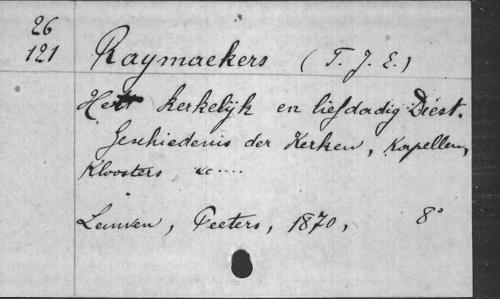 26
121 Raymaekers (F. J. E.)
Het kerkelijk en liefdadig Diest.
Geschiedenis der Kerken, Kapellen,
Kloosters &c....
Leuven, Peeters, 1870, 8°